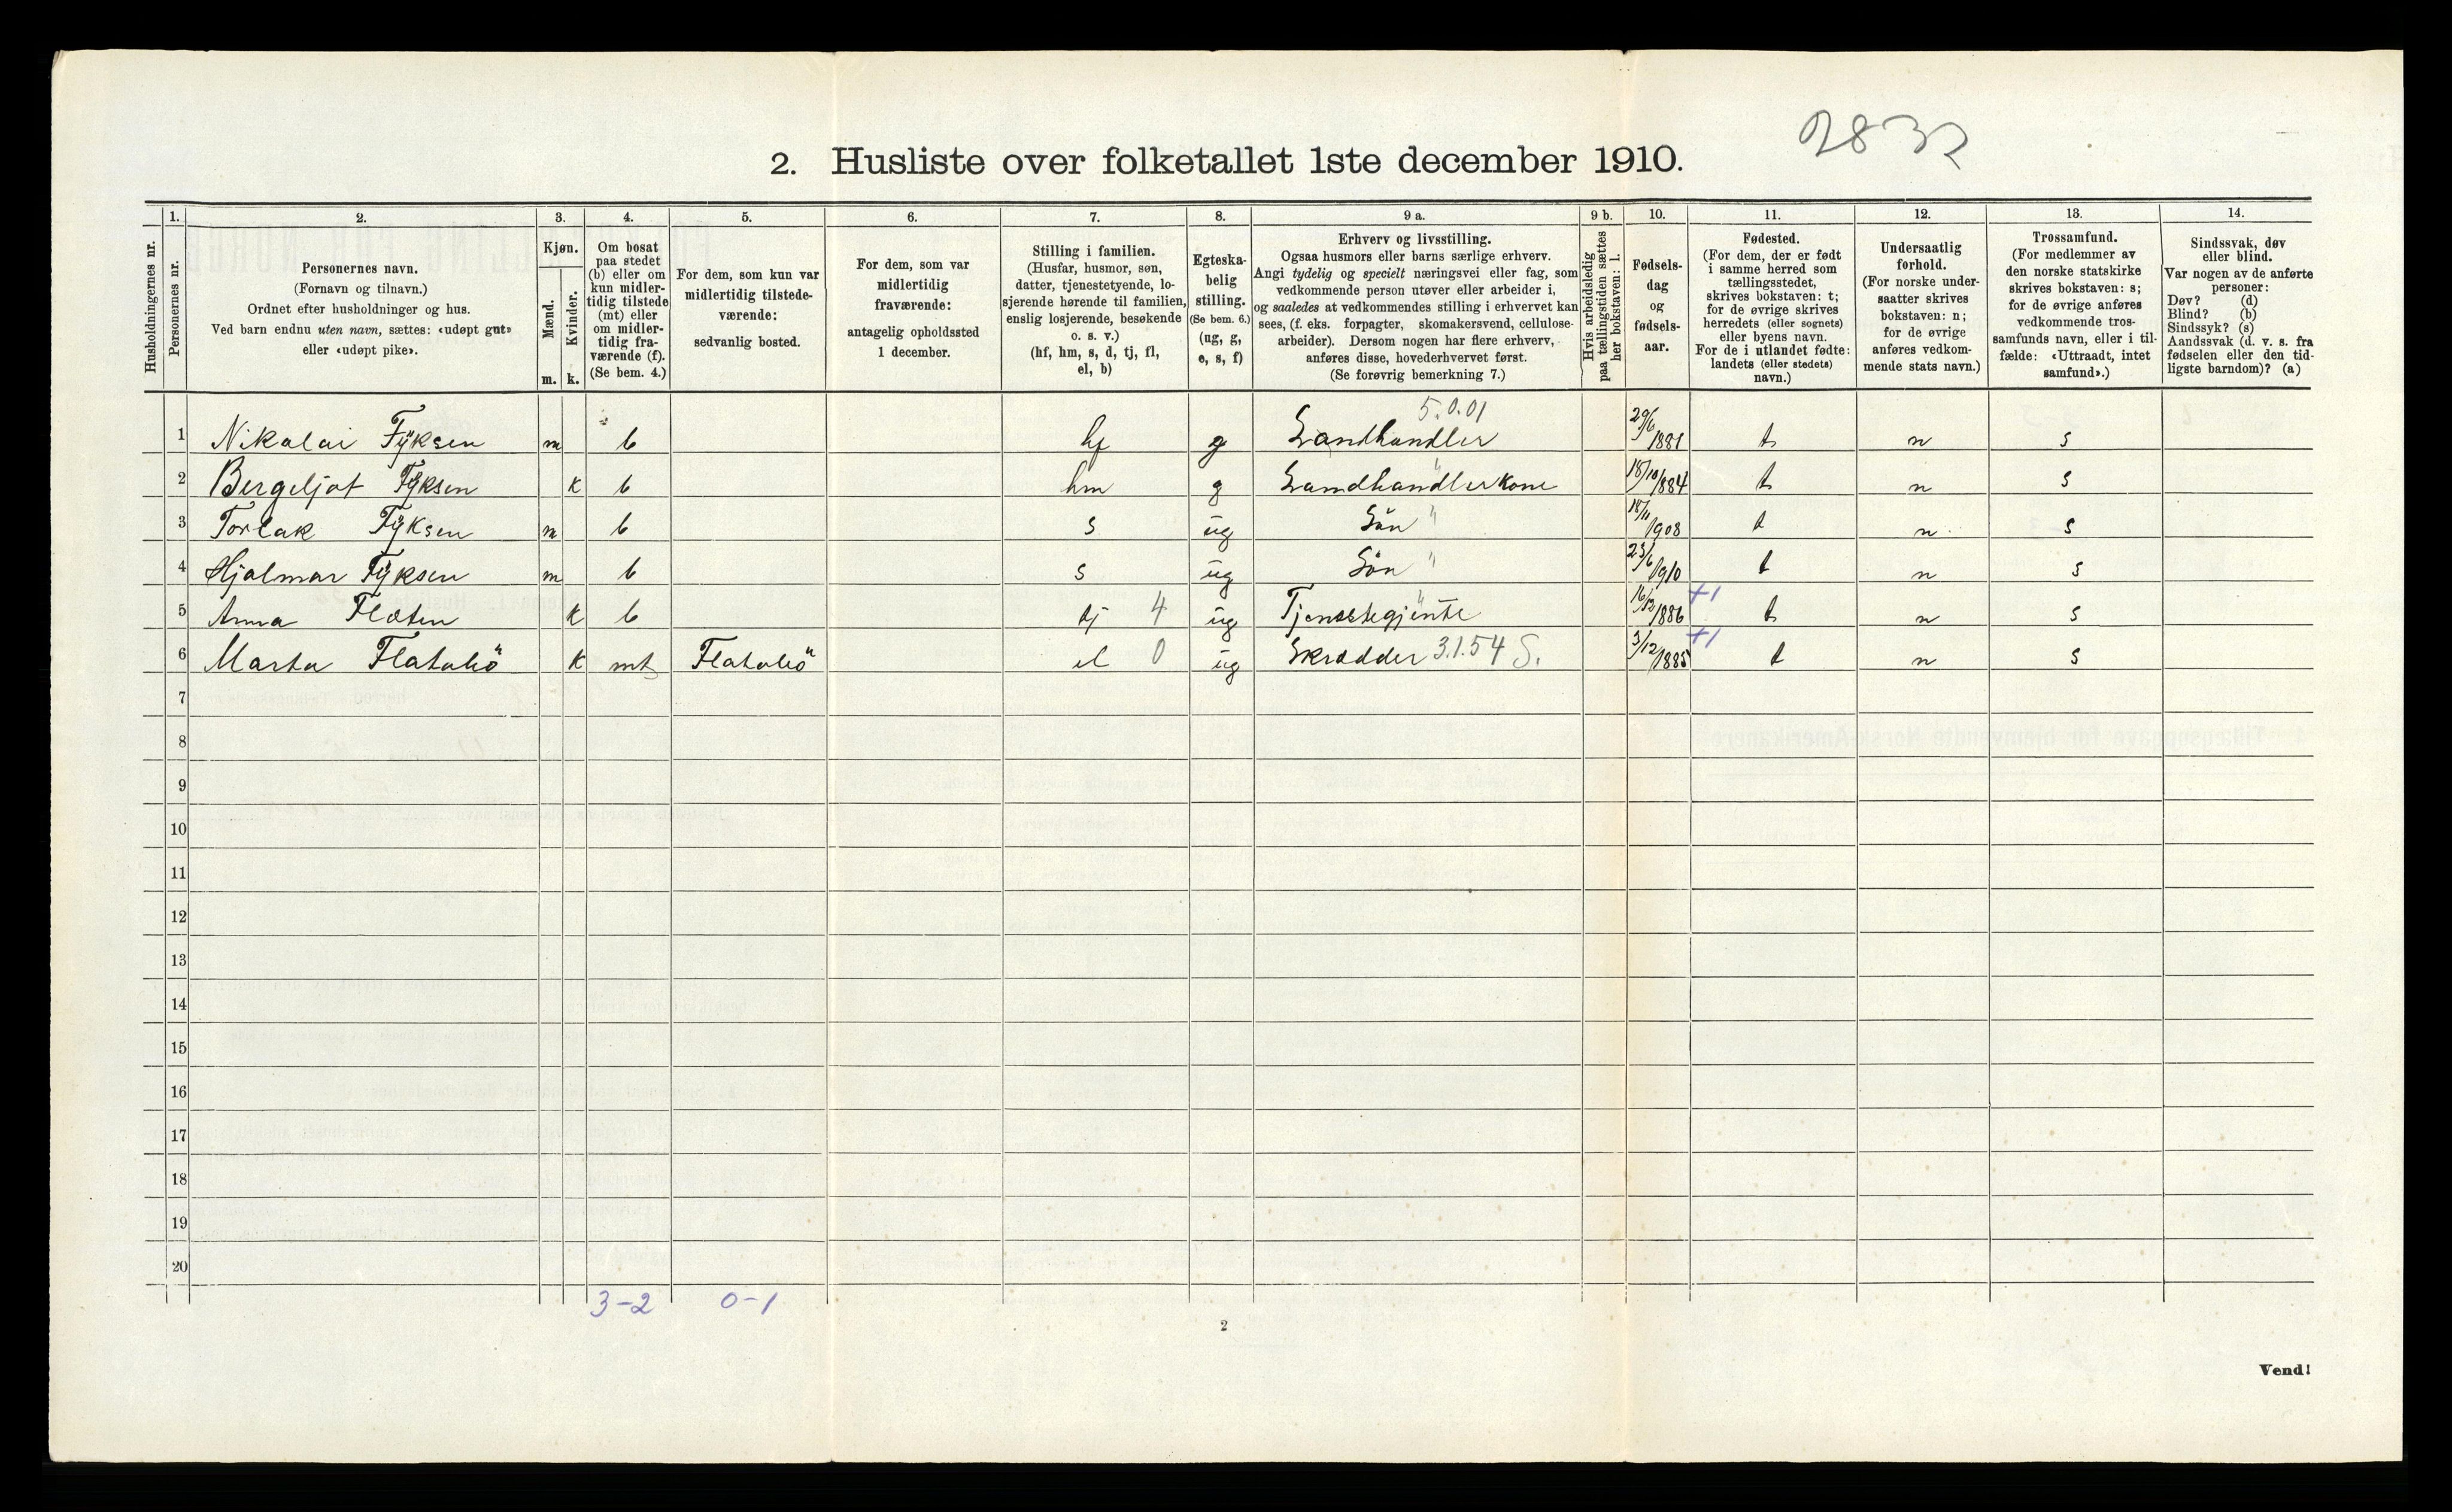 2832
2. Husliste over folketallet 1ste december 1910.
Husholdningernes nr.
1.
Personernes nr.
2.
Personernes navn.
(Fornavn og tilnavn.)
Ordnet efter husholdninger og hus.
Ved barn endnu uten navn, sættes: «udøpt gut»
eller «udøpt pike».
3.
Kjøn.
Mænd.
m.
Kvinder.
k.
4.
Om bosat
paa stedet
(b) eller om
kun midler-
tidig tilstede
(mt) eller
om midler-
tidig fra-
værende (f).
(Se bem. 4.)
5.
For dem, som kun var
midlertidig tilstede-
værende:
sedvanlig bosted.
6.
For dem, som var
midlertidig
fraværende:
antagelig opholdssted
1 december.
7.
Stilling i familien.
(Husfar, husmor, søn,
datter, tjenestetyende, lo-
sjerende hørende til familien,
enslig losjerende, besøkende
o. s. v.)
(hf, hm, s, d, tj, fl,
el, b)
8.
Egteska-
belig
stilling.
(Se bem. 6.)
(ug, g,
e, s, f)
9 a.
Erhverv og livsstilling.
Ogsaa husmors eller barns særlige erhverv.
Angi tydelig og specielt næringsvei eller fag, som
vedkommende person utøver eller arbeider i,
og saaledes at vedkommendes stilling i erhvervet kan
sees, (f. eks. forpagter, skomakersvend, cellulose-
arbeider). Dersom nogen har flere erhverv,
anføres disse, hovederhvervet først.
(Se forøvrig bemerkning 7.)
9 b.
Hvis arbeidsledig
paa tællingstiden sættes
her bokstaven: l.
10.
Fødsels-
dag
og
fødsels-
aar.
11.
Fødested.
(For dem, der er født
i samme herred som
tællingsstedet,
skrives bokstaven: t;
for de øvrige skrives
herredets (eller sognets)
eller byens navn.
For de i utlandet fødte:
landets (eller stedets)
navn.)
12.
Undersaatlig
forhold.
(For norske under-
saatter skrives
bokstaven: n;
for de øvrige
anføres vedkom-
mende stats navn.)
13.
Trossamfund.
(For medlemmer av
den norske statskirke
skrives bokstaven: s;
for de øvrige anføres
vedkommende tros-
samfunds navn, eller i til-
fælde: «Uttraadt, intet
samfund».)
14.
Sindssvak, døv
eller blind.
Var nogen av de anførte
personer:
Døv? (d)
Blind? (b)
Sindssyk? (s)
Aandssvak (d. v. s. fra
fødselen eller den tid-
ligste barndom)? (a)
5.0.01
1 Nikolai Fyksen m b hf g Landhandler 29/6 1881 t n s
2 Bergeljot Fyksen k b hm g Landhandlerkone " 18/10 1884 t n s
3 Torlak Fyksen m b s ug Sön " 18/11 1908 t n s
4 Hjalmar Fyksen m b s ug Sön " 23/6 1910 t n s
5 Anna Flaten k b tj 4 ug Tjenestegjente " 16/12 1886 +1 t n s
6 Marta Flatabö k mt Flatabö el 0 ug Skrædder 3.1.54 S. 3/12 1885 +1 t n s
7
8
9
10
11
12
13
14
15
16
17
18
19
20
3-2 0-1
2
Vend!